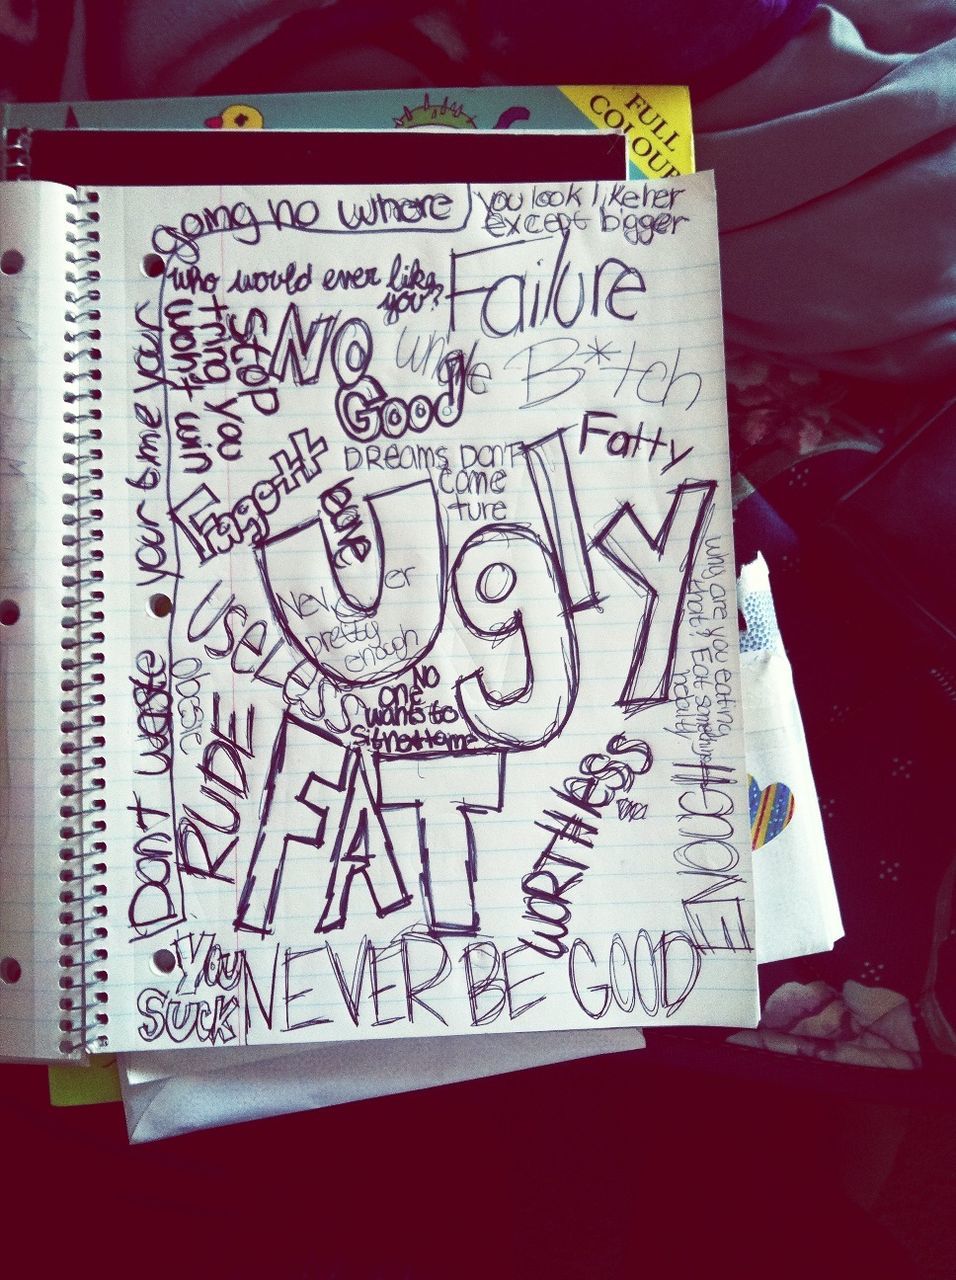 FULL
COLOUR
going no where
you look like her
except bigger
who would ever like
you?
Failure
NO
Good
B*tch
stop
tring you
wont win
Fatty
DREAMS DON'T
come
ture
Fagott
Ugly
Never
pretty
enough
Useless
NO
one
wants to
why are you eating
that? Eat something
healty
obesie
RUDE
FAT
WORTHLESS
NO ONE
Dont waste your time your
You
Suck
NEVER BE GOOD